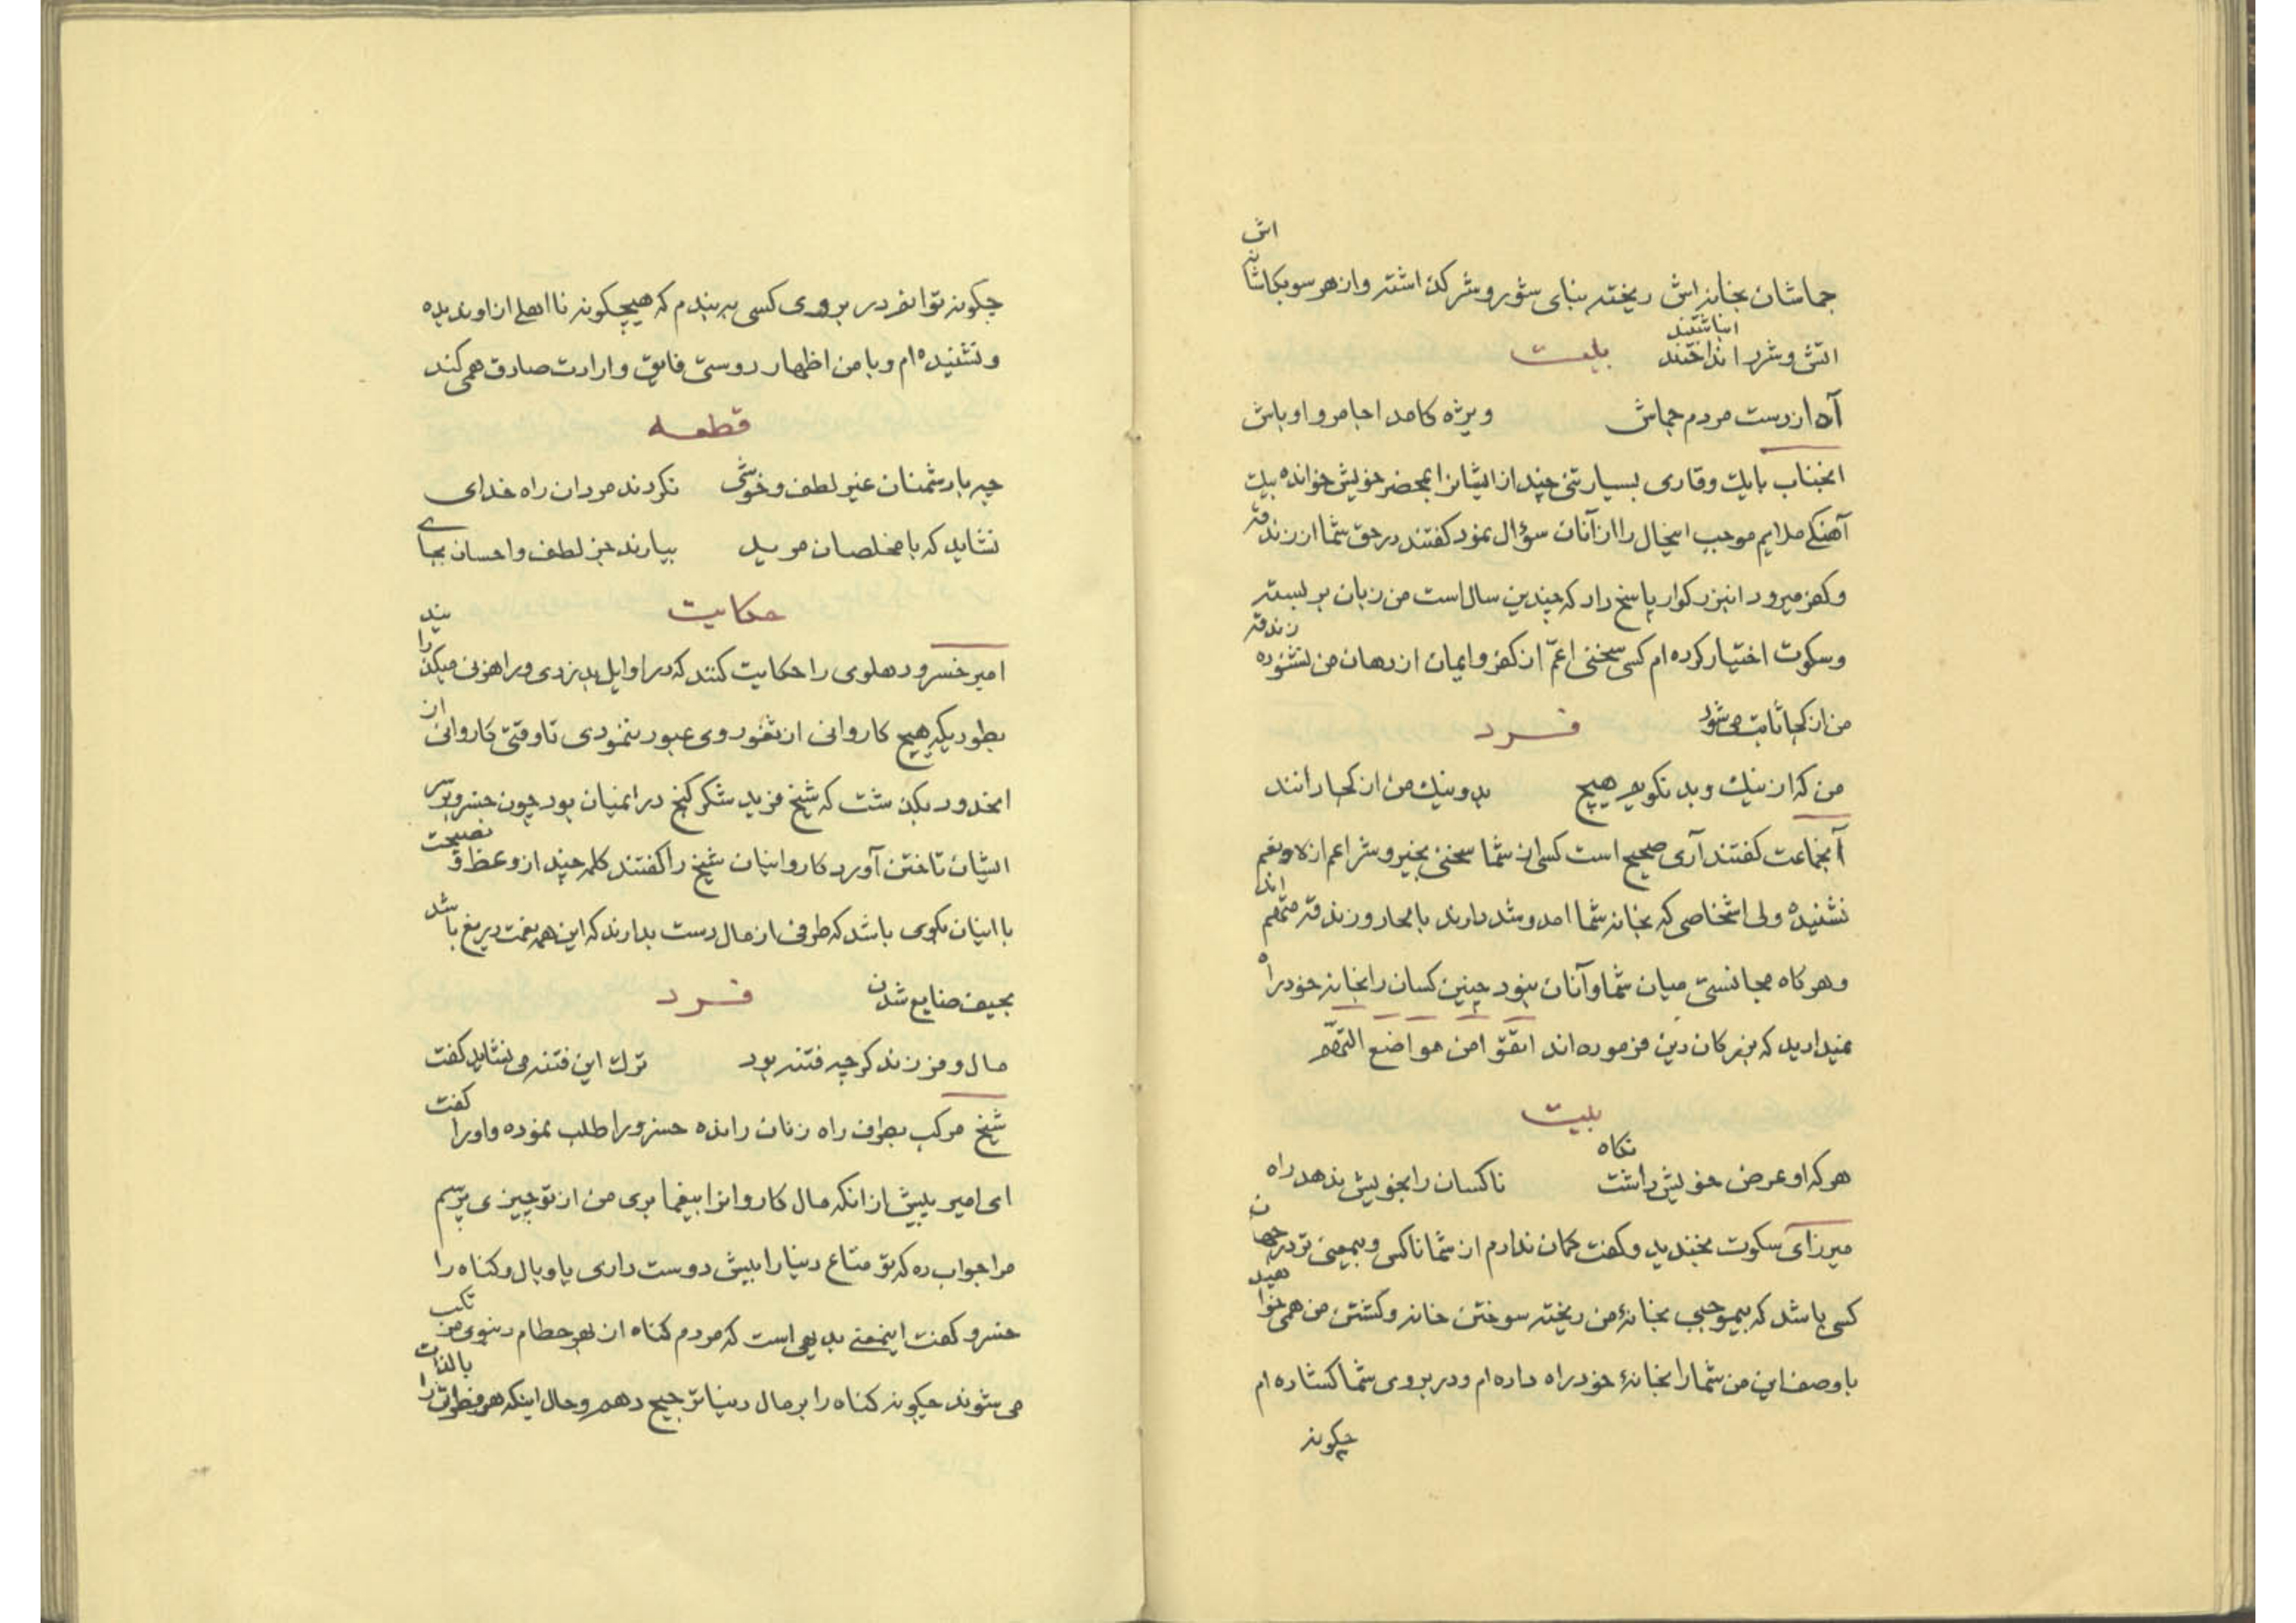 جماشان بخانه‌اش ریخته بنای شور و شر گذاشته و از هر سو بکاشانه‌اش
اتش و شرر انداختند انباشتند بیت
آه از دست مردم جماش ویژه کامد اجامر و اوباش
انجناب بایک وقاری بسیار تنی چند از ایشانرا بمحضر خویش خوانده بیک
آهنگ ملایم موجب اینحال را از آنان سؤال نمود گفتند در حق شما از زندقه
و کفر میرود انبزرکوار پاسخ داد که چندین سال است من زبان بر بسته
و سکوت اختیار کرده‌ام کسی سخنی اعمّ از کفر و ایمان از دهان من نشنوده زندقه
من از کجا ثابت می‌شود فرد
من که از نیک و بد نکویم هیچ بد و نیک من از کجا دانند
آنجماعت کفتند آری صحیح است کسی از شما سخنی بخیر و شر اعم از لا و نعم
نشنیده ولی اشخاصی که بخانه شما امد و شد دارند بالحاد و زندقه متهم‌اند
و هرکاه مجانستی میان شما و آنان نبود چنین کسان را بخانه خود راه
نمیدادید که بزرکان دین فرموده‌اند اتقوا من مواضع التهم
بیت
هر که او عرض خویش داشت نکاه ناکسان را بخویش ندهد راه
میرزای سکوت بخندید و کفت کمان ندارم از شما ناکس و بیمعنی تر در جهان
کسی باشد که بیموجبی بخانهٔ من ریخته سوختن خانه و کشتن من همی‌خواهید
با وصف این من شما را بخانهٔ خود راه داده‌ام و در بروی شما کشاده‌ام
چکونه
چکونه توانم در بروی کسی به بندم که هیچکونه نااهلی از او ندیده
و نشنیده‌ام و با من اظهار دوستی فایق و ارادت صادق همی کند
قطعه
چه با دشمنان غیر لطف و خوشی نکردند مردان راه خدای
نشاید که با مخلصان مرید بیارند جز لطف و احسان بجای
حکایت
امیر خسرو دهلوی را حکایت کنند که در اوایل بدزدی و راهزنی میکذرانید
بطوریکه هیچ کاروانی از ثغور وی عبور ننمودی تا وقتی کاروانی از
انحدود بکذشت که شیخ فرید شکر کنج در انمیان بود چون خسرو بر سر
ایشان تاختن آورد کاروانیان شیخ را کفتند کلمه چند از وعظ و نصیحت
با اینان بکوی باشد که طرفی از مال دست بدارند که این همه نعمت دریغ باشد
بحیف ضایع شدن فرد
مال و فرزند کرچه فتنه بود ترک این فتنه می نشاید کفت
شیخ مرکب بطرف راه زنان رانده خسرو را طلب نموده و او را کفت
ای امیر پیش از انکه مال کاروانرا بیغما بری من از تو چیزی پرسم
مرا جواب ده که تو متاع دنیا را بیش دوست داری یا وبال و کناه را
خسرو کفت اینمعنی بدیهی است که مردم کناه از بهر حطام دنیوی مرتکب
می شوند چکونه کناه را بر مال دنیا ترجیح دهم و حال اینکه هر فطرت بالذات را